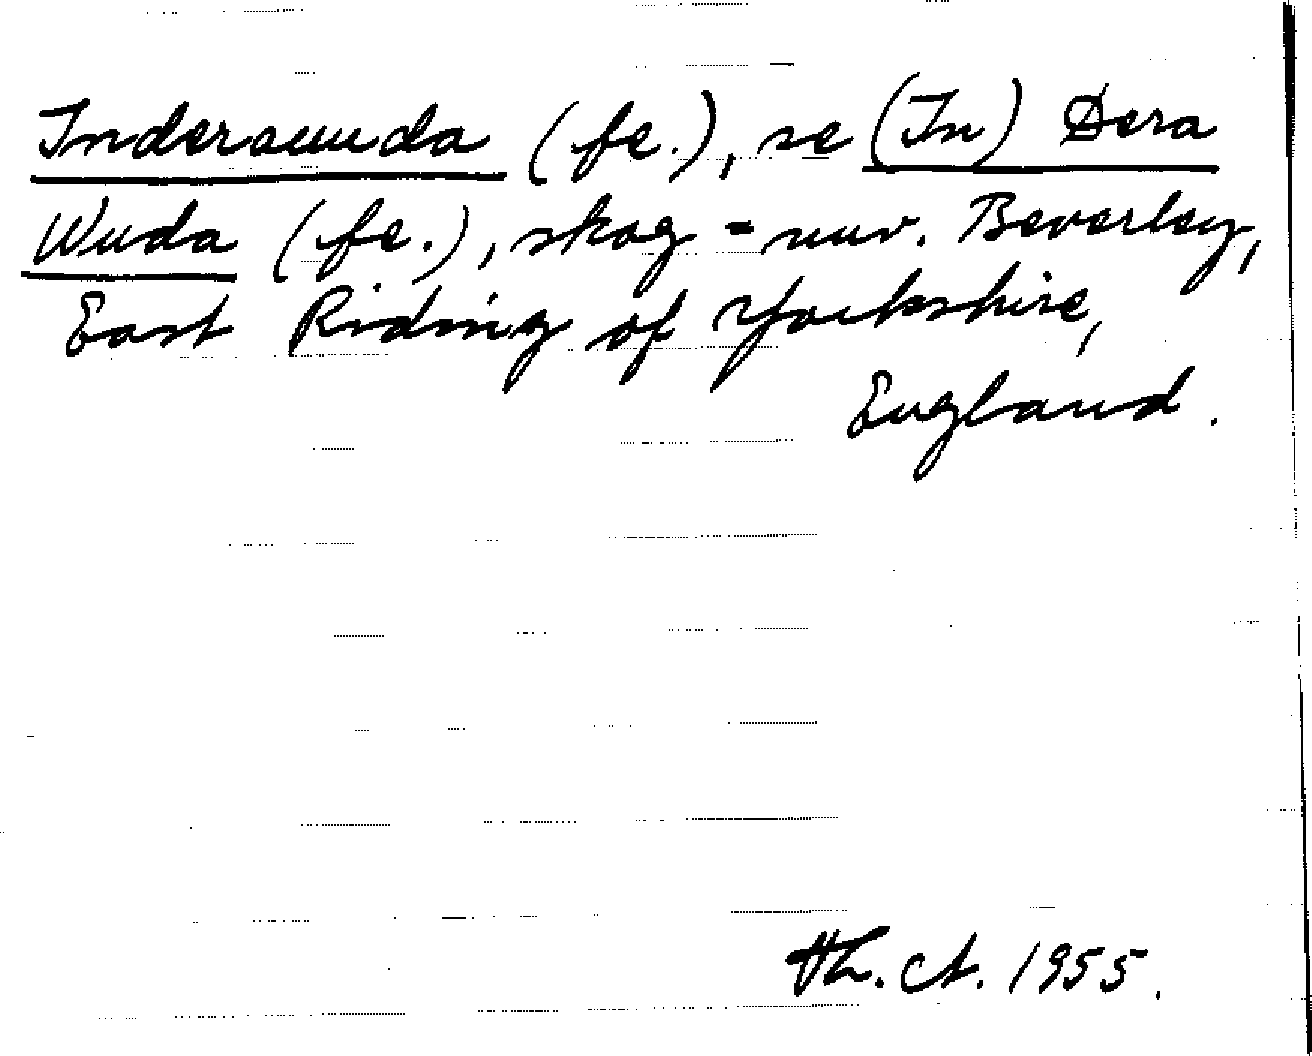 Inderauuda (fe.), se (In) Dera
Wuda (fe.), skog = nuv. Beverley,
East Riding of Yorkshire,
England.
Th. A. 1955.